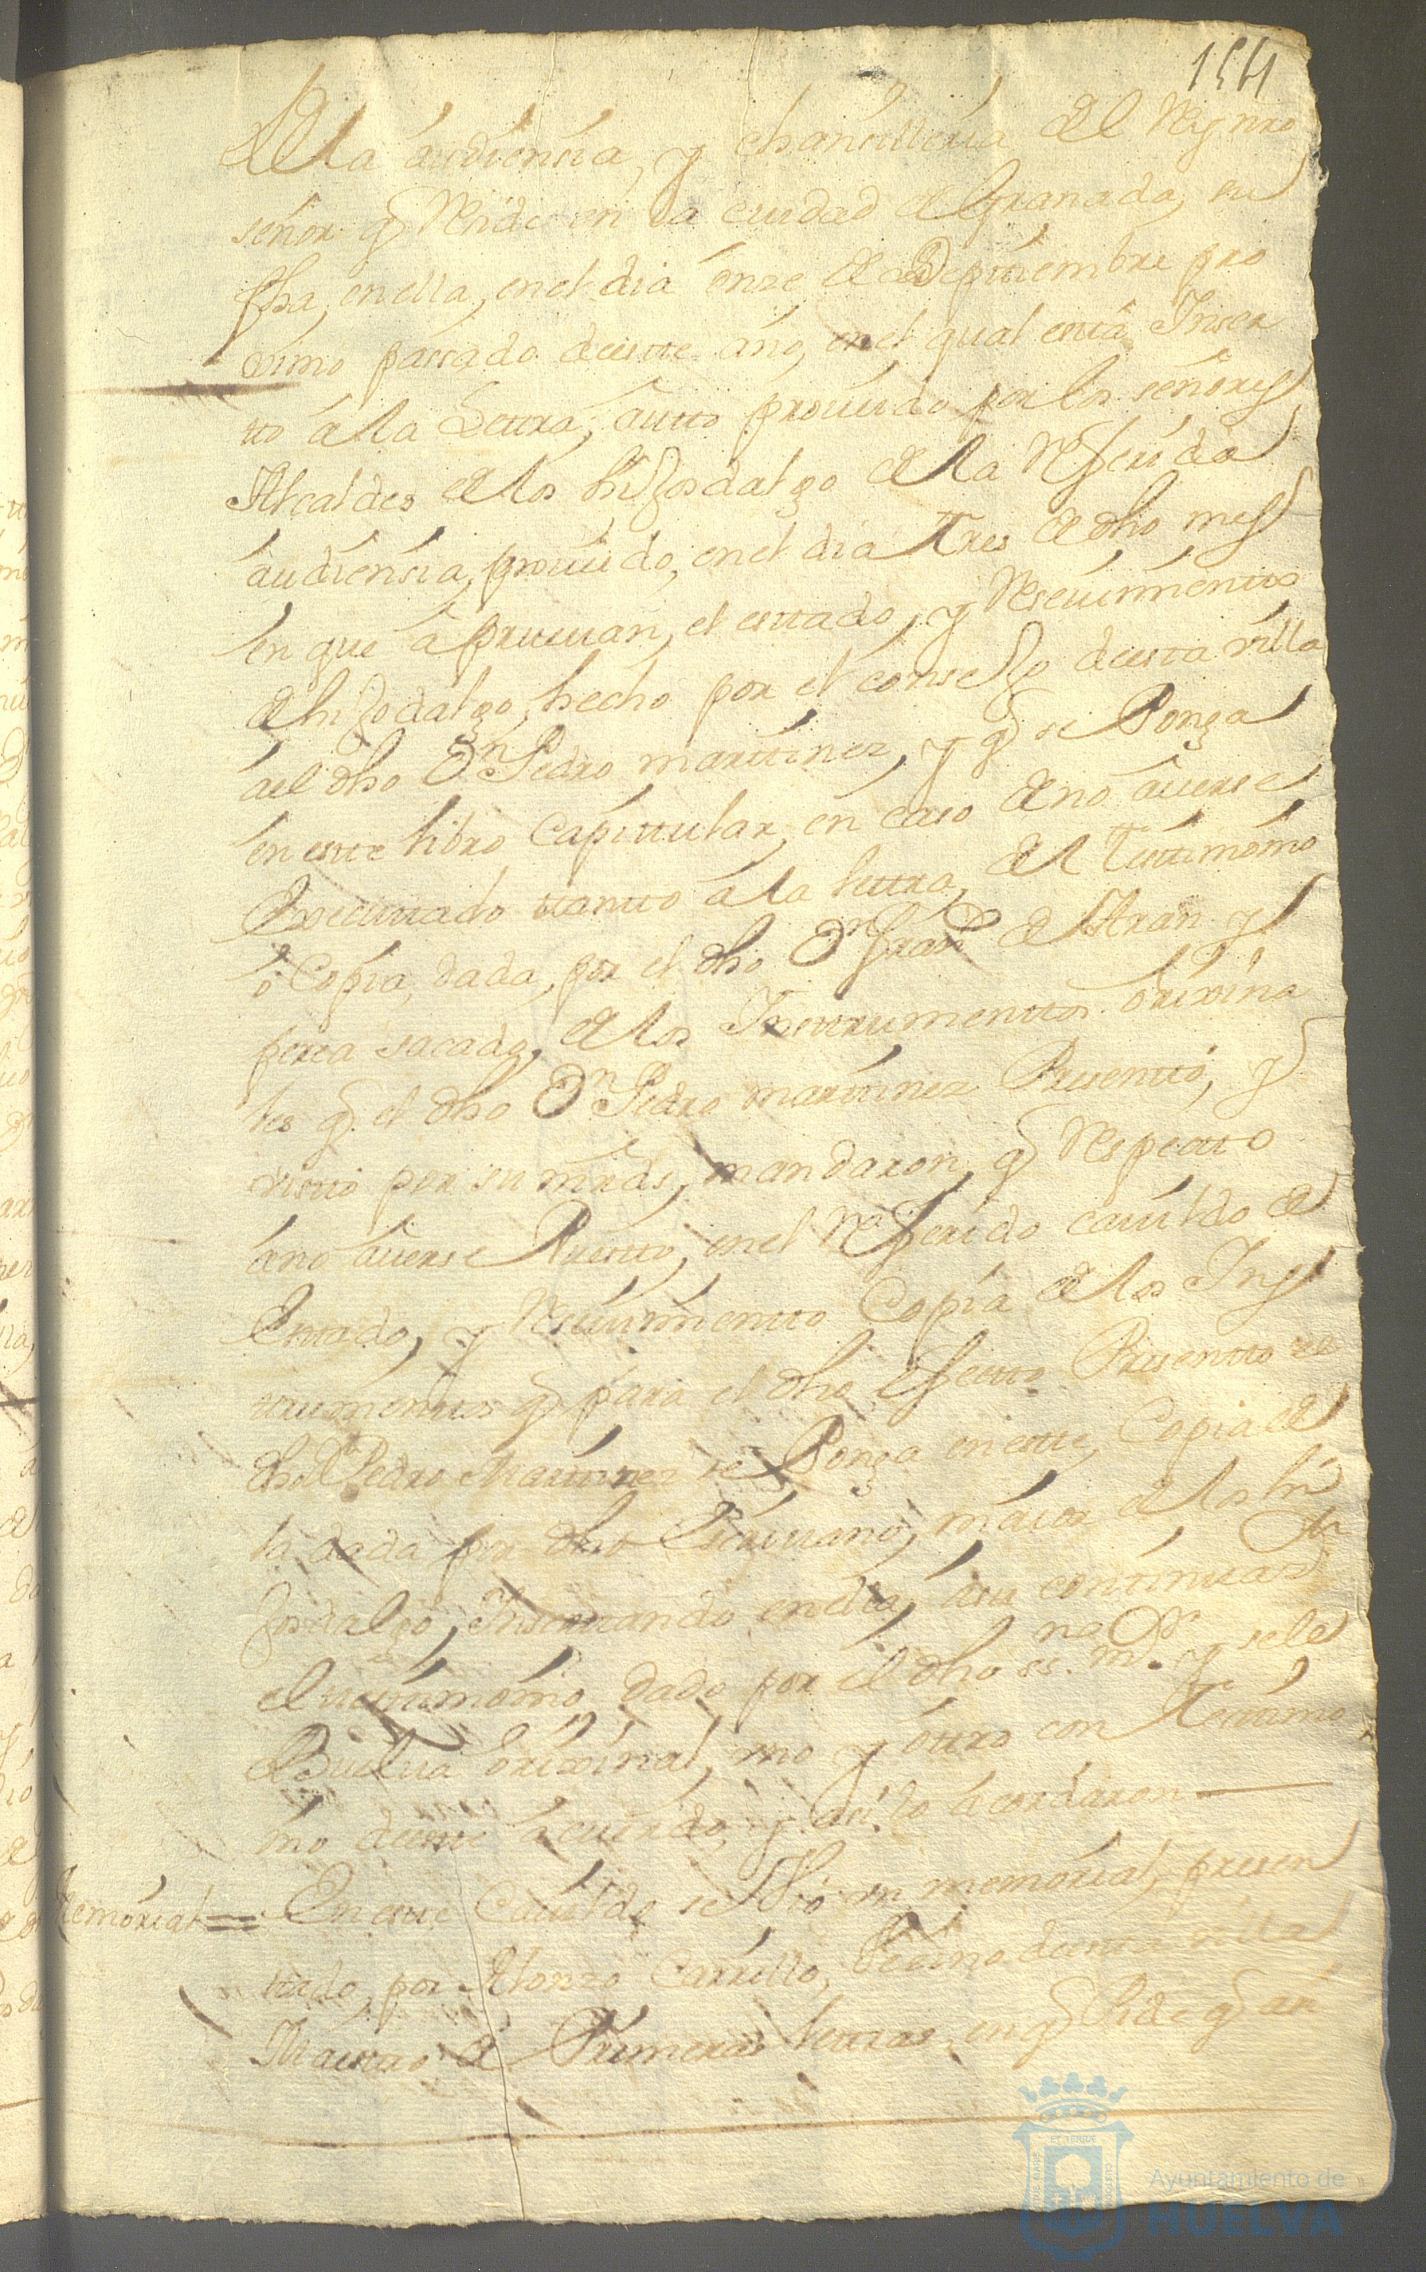 154
de la audiensia, y chansilleria del Rey nro
señor q Reside en la ciudad de Granada, su
fha, en ella, en el dia onze de septiembre pro
ximo passado de este año, en el qual está Inser
tto a la Lettra, autto proueido por los señores
Alcaldes de los hijosdalgo de la Referida
audiensia, proueido, en el dia Tres de dho mes
en que aprueuan, el esttado, y Reseuimientto
de hijodalgo, hecho por el consejo de esta villa
ael dho Dn Pedro martinez, y q se Ponga
en este libro Capittular, en caso de no auerse
Executtado ttantto a la lettra, del Testtimonio
o Copia, dada, por el dho Dn Franco de Aran y
perea sacado, de los Insttrumenttos orixina
les q el dho Dn Pedro martinez Presenttó, y
visto por sus mrds, mandaron, q Respectto
ano auerse Puestto, en el Referido cauildo de
Esttado, y Reseuimientto Copia de los Ins
ttrumenttos q para el dho efectto Presentto el
dho Dn Pedro Martinez se Ponga en estte, Copia de
la dada por dho Escriuano, maior de los hi
josdalgo, Insertando en ella, a su continuaz.on
el testtimonio, dado por el dho ss.no m.or y se le
Buelua orixinal, vno y ottro con Testtimo
nio de este acuerdo, y asi lo acordaron —
Memorial = En este Cauildo se vió vn memorial, presen
tado, por Alonzo Carrillo, Vecino de esta villa
Maestro de Primeras lettras en q Pide q an
Ayuntamiento de
HUELVA